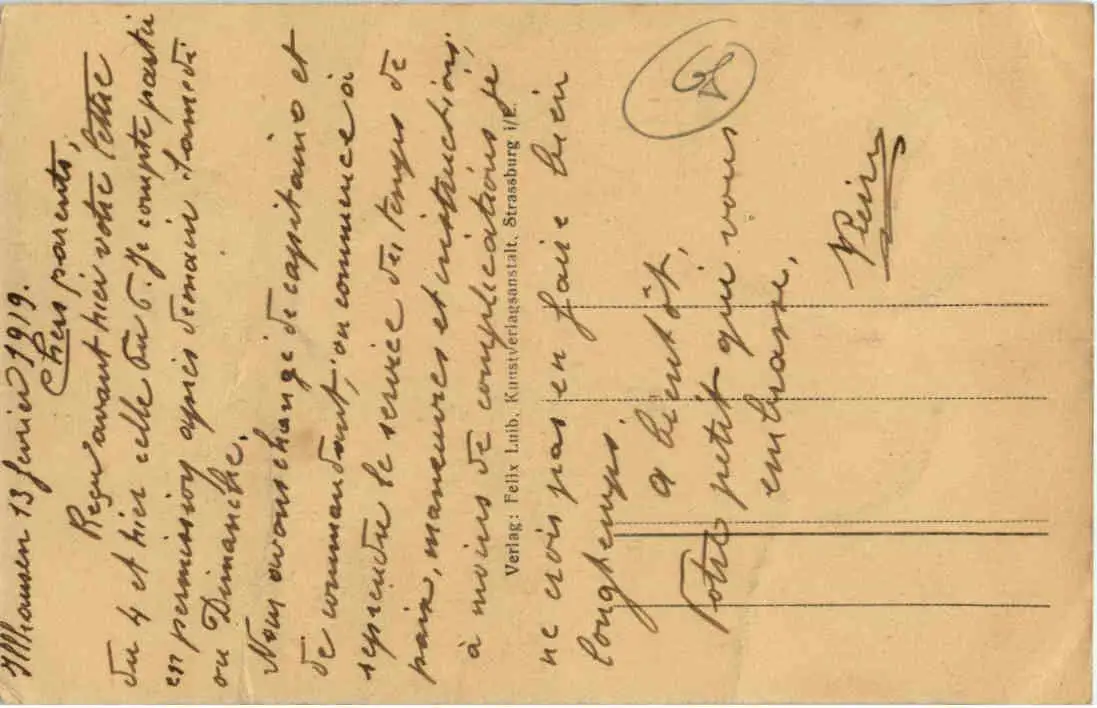 Illhausen 13 fevrier 1919.
Chers parents,
Reçu avant hier votre lettre
du 4 et hier celle du 6. Je compte partir
en permission après demain Samedi
ou Dimanche.
Nous avons changé de capitaine et
de commandant, on commence à
reprendre le service du temps de
paix, manœuvres et instructions,
à moins de complications je
ne crois pas en faire bien
longtemps.
A bientôt,
Votre petit qui vous
embrasse,
Verlag: Felix Luib, Kunstverlagsanstalt, Strassburg i/E.